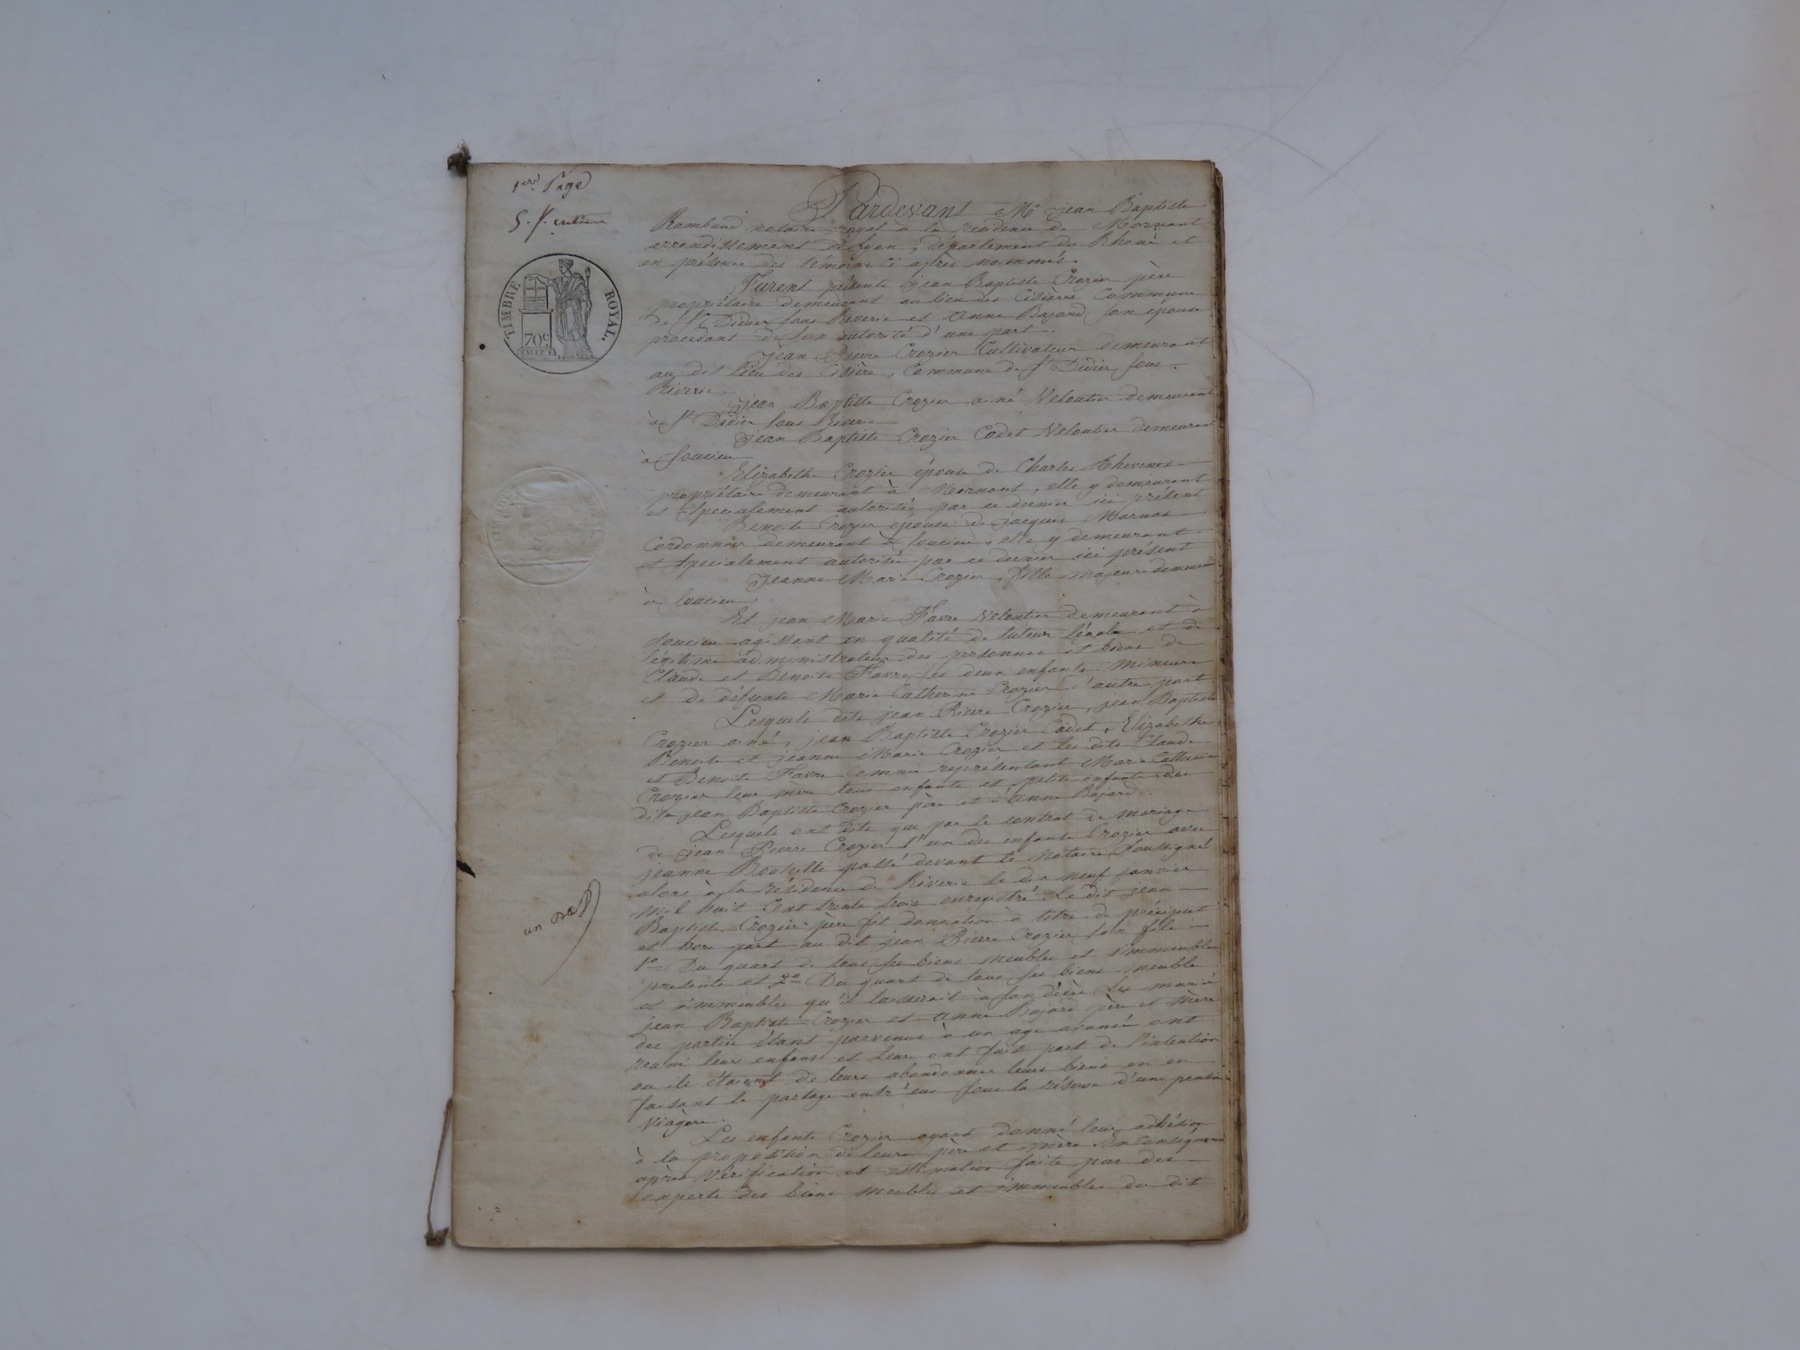 1ere Page
TIMBRE ROYAL
70c
Pardevant Me jean Baptiste
Rambaud notaire royal à la residence de Mornant
arrondissement de Lyon, département du Rhône et
en présence des témoins ci après nommés.
Furent présents jean Baptiste Crozier père
propriétaire demeurant au lieu des Cisière Commune
de St Didier sous Riverie et Anne Bajard son épouse
procédant de son autorité d'une part.
jean Pierre Crozier Cultivateur demeurant
au dit lieu des Cisière, Commune de St Didier sous
Riverie.
jean Baptiste Crozier ainé Veloutier demeurant
à St Didier sous Riverie
jean Baptiste Crozier Cadet Veloutier demeurant
à Soucieu
Elizabethe Crozier épouse de Charles Thevenot
propriétaire demeurant à Mornant, elle y demeurant
et spécialement autorisée par ce dernier ici présent
Benoite Crozier épouse de jacques Marnas
Cordonnier demeurant à Soucieu, elle y demeurant
et spécialement autorisée par ce dernier ici présent
Jeanne Marie Crozier, fille majeure demeurant
à Soucieu
Et jean Marie Favre Veloutier demeurant à
Soucieu agissant en qualité de tuteur légale et de
légitime administrateur des personnes et biens de
Claude et Benoite Favre ses deux enfants mineurs
et de défunte Marie Catherine Crozier d'autre part
Lesquels dits jean Pierre Crozier, jean Baptiste
Crozier ainé, jean Baptiste Crozier Cadet, Elizabethe
Benoite et jeanne Marie Crozier et les dits Claude
et Benoite Favre Comme représentant Marie Catherine
Crozier leur mère tous enfants et petits enfants des
dits jean Baptiste Crozier père et d'Anne Bajard
Lesquels ont dits que par le contrat de mariage
de jean Pierre Crozier l'un des enfants Crozier avec
jeanne passé devant le Notaire Soussigné
alors à la résidence de Riverie le dix neuf janvier
mil huit Cent trente trois enregistré le dit jean
Baptiste Crozier père fit donnation à titre de préciput
et hors part au dit jean Pierre Crozier son fils
1° Du quart de tous ses biens meubles et immeubles
présents et 2° Du quart de tous ses biens meubles
et immeubles qu'il laisserait à son décès Les mariés
jean Baptiste Crozier et Anne Bajard père et mère
des parties étant parvenus à un age avancé ont
réuni leurs enfans et leur ont fait part de l'intention
ou ils étaient de leurs abandonner leurs biens en en
faisant le partage entr'eux sous la réserve d'une pention
Viagère.
Les enfants Crozier ayant donné leur adhésion
à la proposition de leurs père et mère En Conséquence
après Vérification et estimation faite par des
experts des biens meubles et immeubles du dit